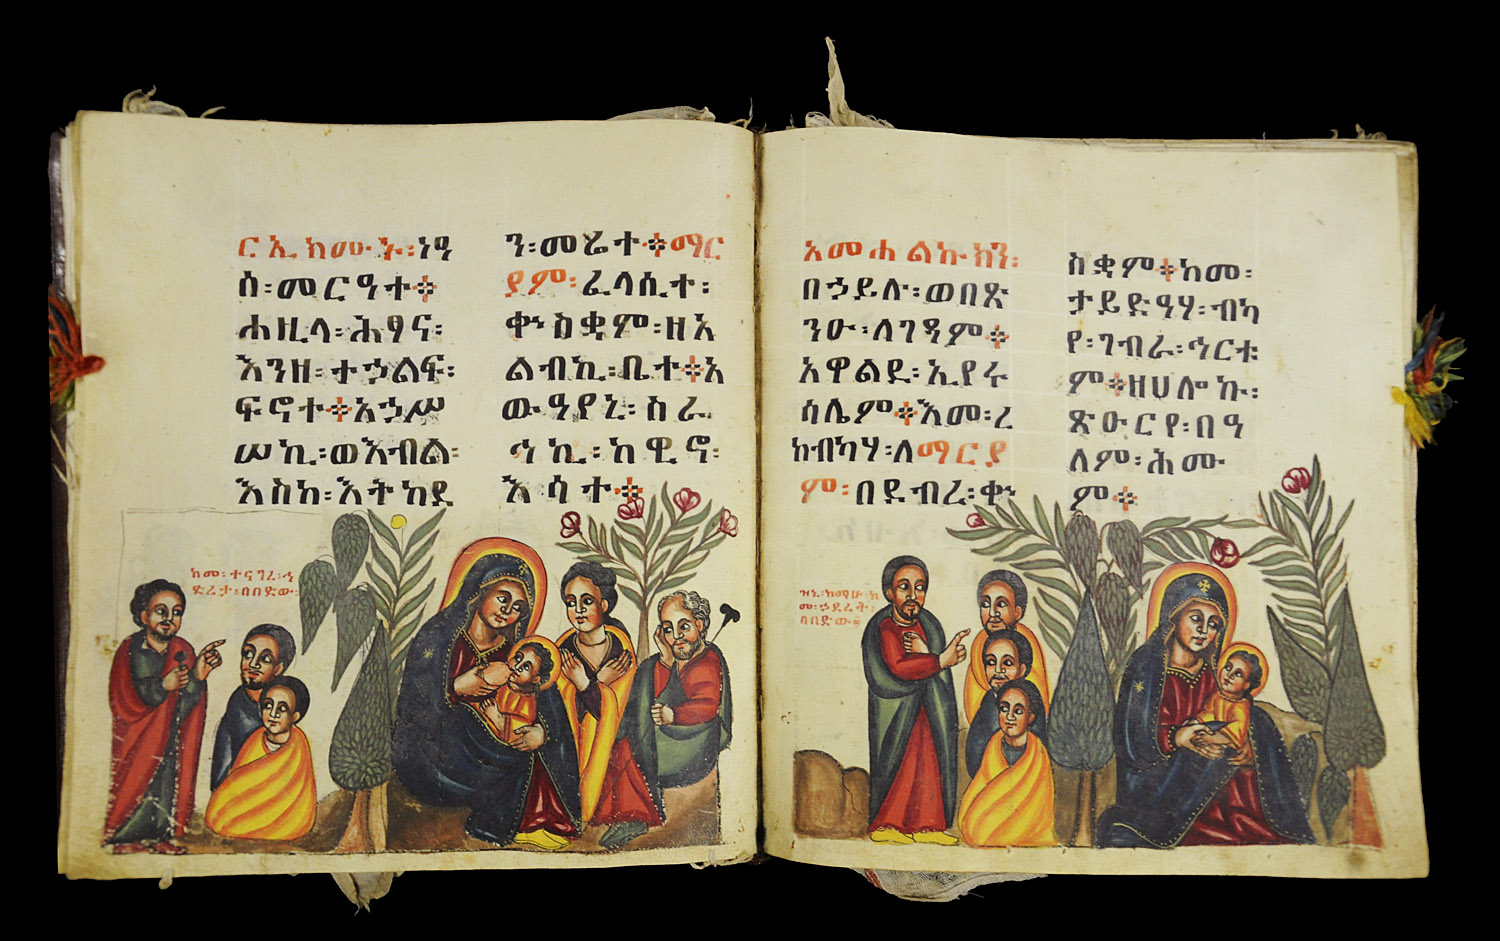 ርኢክሙኑ፡ነዓ
ሰ፡መርዓተ፨
ሐዚላ፡ሕፃና፡
እንዘ፡ተኃልፍ፡
ፍኖተ፨አኃሥ
ሠኪ፡ወእብል፡
እስከ፡እትከደ
ን፡መሬተ፨ማር
ያም፡ፈላሲተ፡
ቀኍስቋም፡ዘአ
ልብኪ፡ቤተ፨አ
ውዓየኒ፡ስራ
ኅኪ፡ከዊኖ፡
እሳተ፨
ከመ፡ተናገረ፡ኂ
ድረታ፡በበድው፡
አመሐልኩክን፡
በኃይሉ፡ወበጽ
ንዑ፡ለገዳም፨
አዋልደ፡ኢየሩ
ሳሌም፨እመ፡ረ
ከብካሃ፡ለማርያ
ም፡በደብረ፡ቀኍ
ስቋም፨ከመ፡
ታይድዓሃ፡ብካ
የ፡ገብራ፡ኅርተ
ም፨ዘሀሎኩ፡
ጽዑርየ፡በዓ
ለም፡ሕሙ
ም፨
መ፡ኃደረት፡
በበድው፡